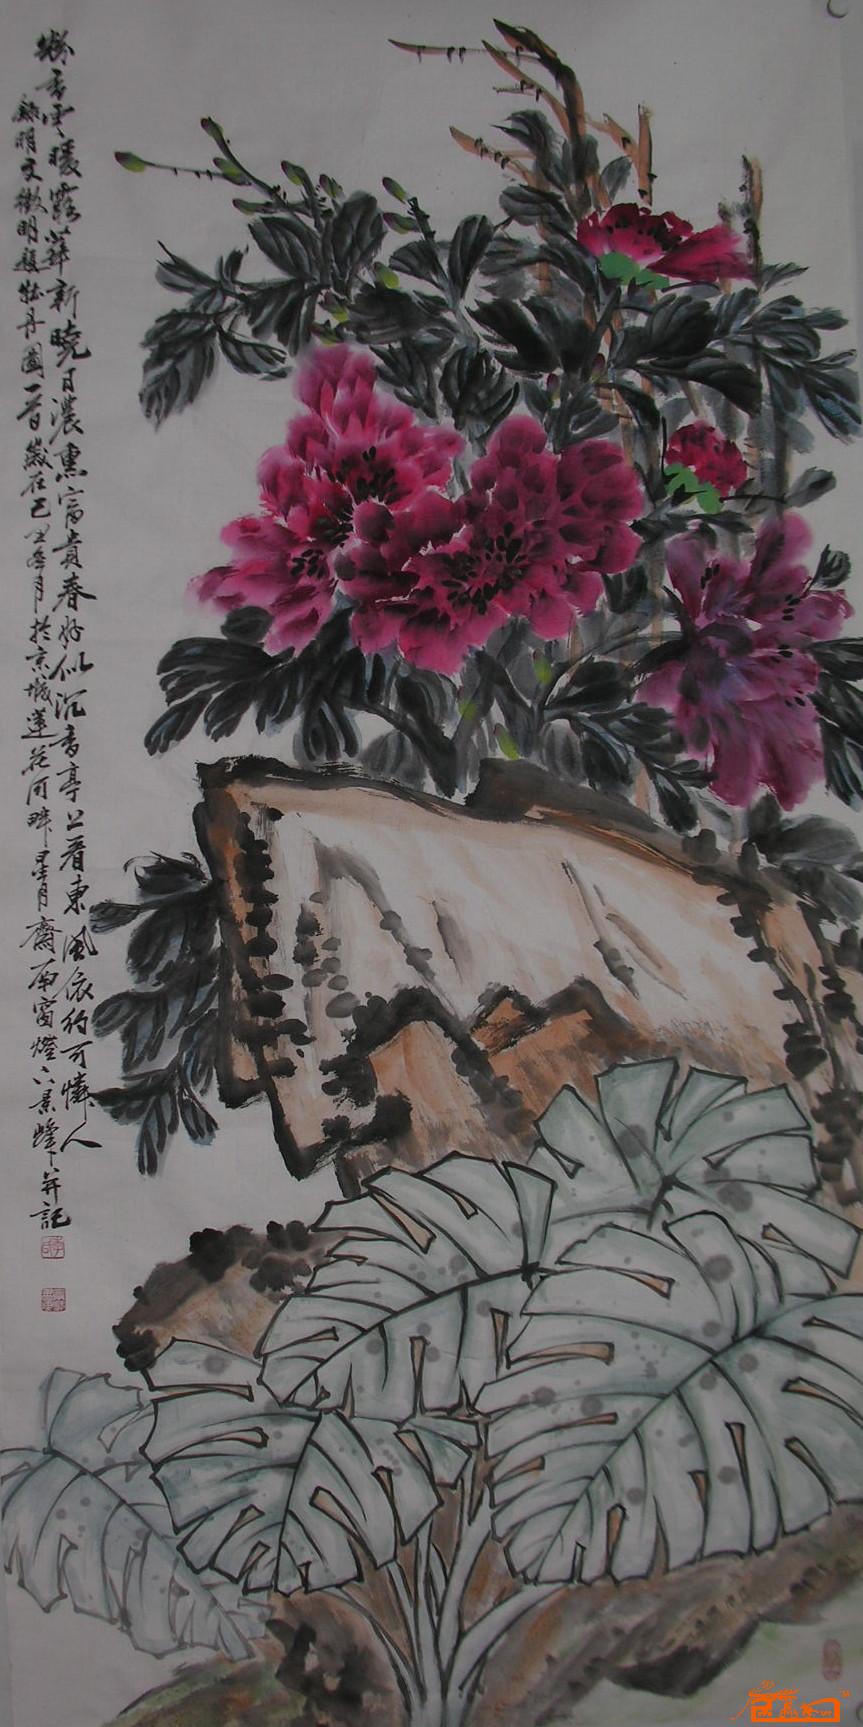 粉香雲暖露華新曉日濃熏富貴春好似沉香亭上看東風依約可憐人
録明文徵明題牡丹圖一首歲在己丑冬月於京城蓮花河畔月齋南窗燈下景峰并記